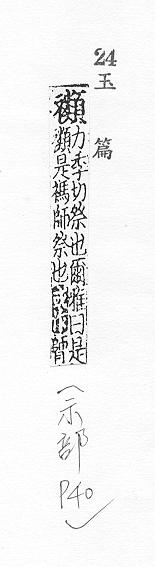 24
玉篇
禷
力季切祭也爾雅曰是
禷是禡師祭也
(示部 P40)